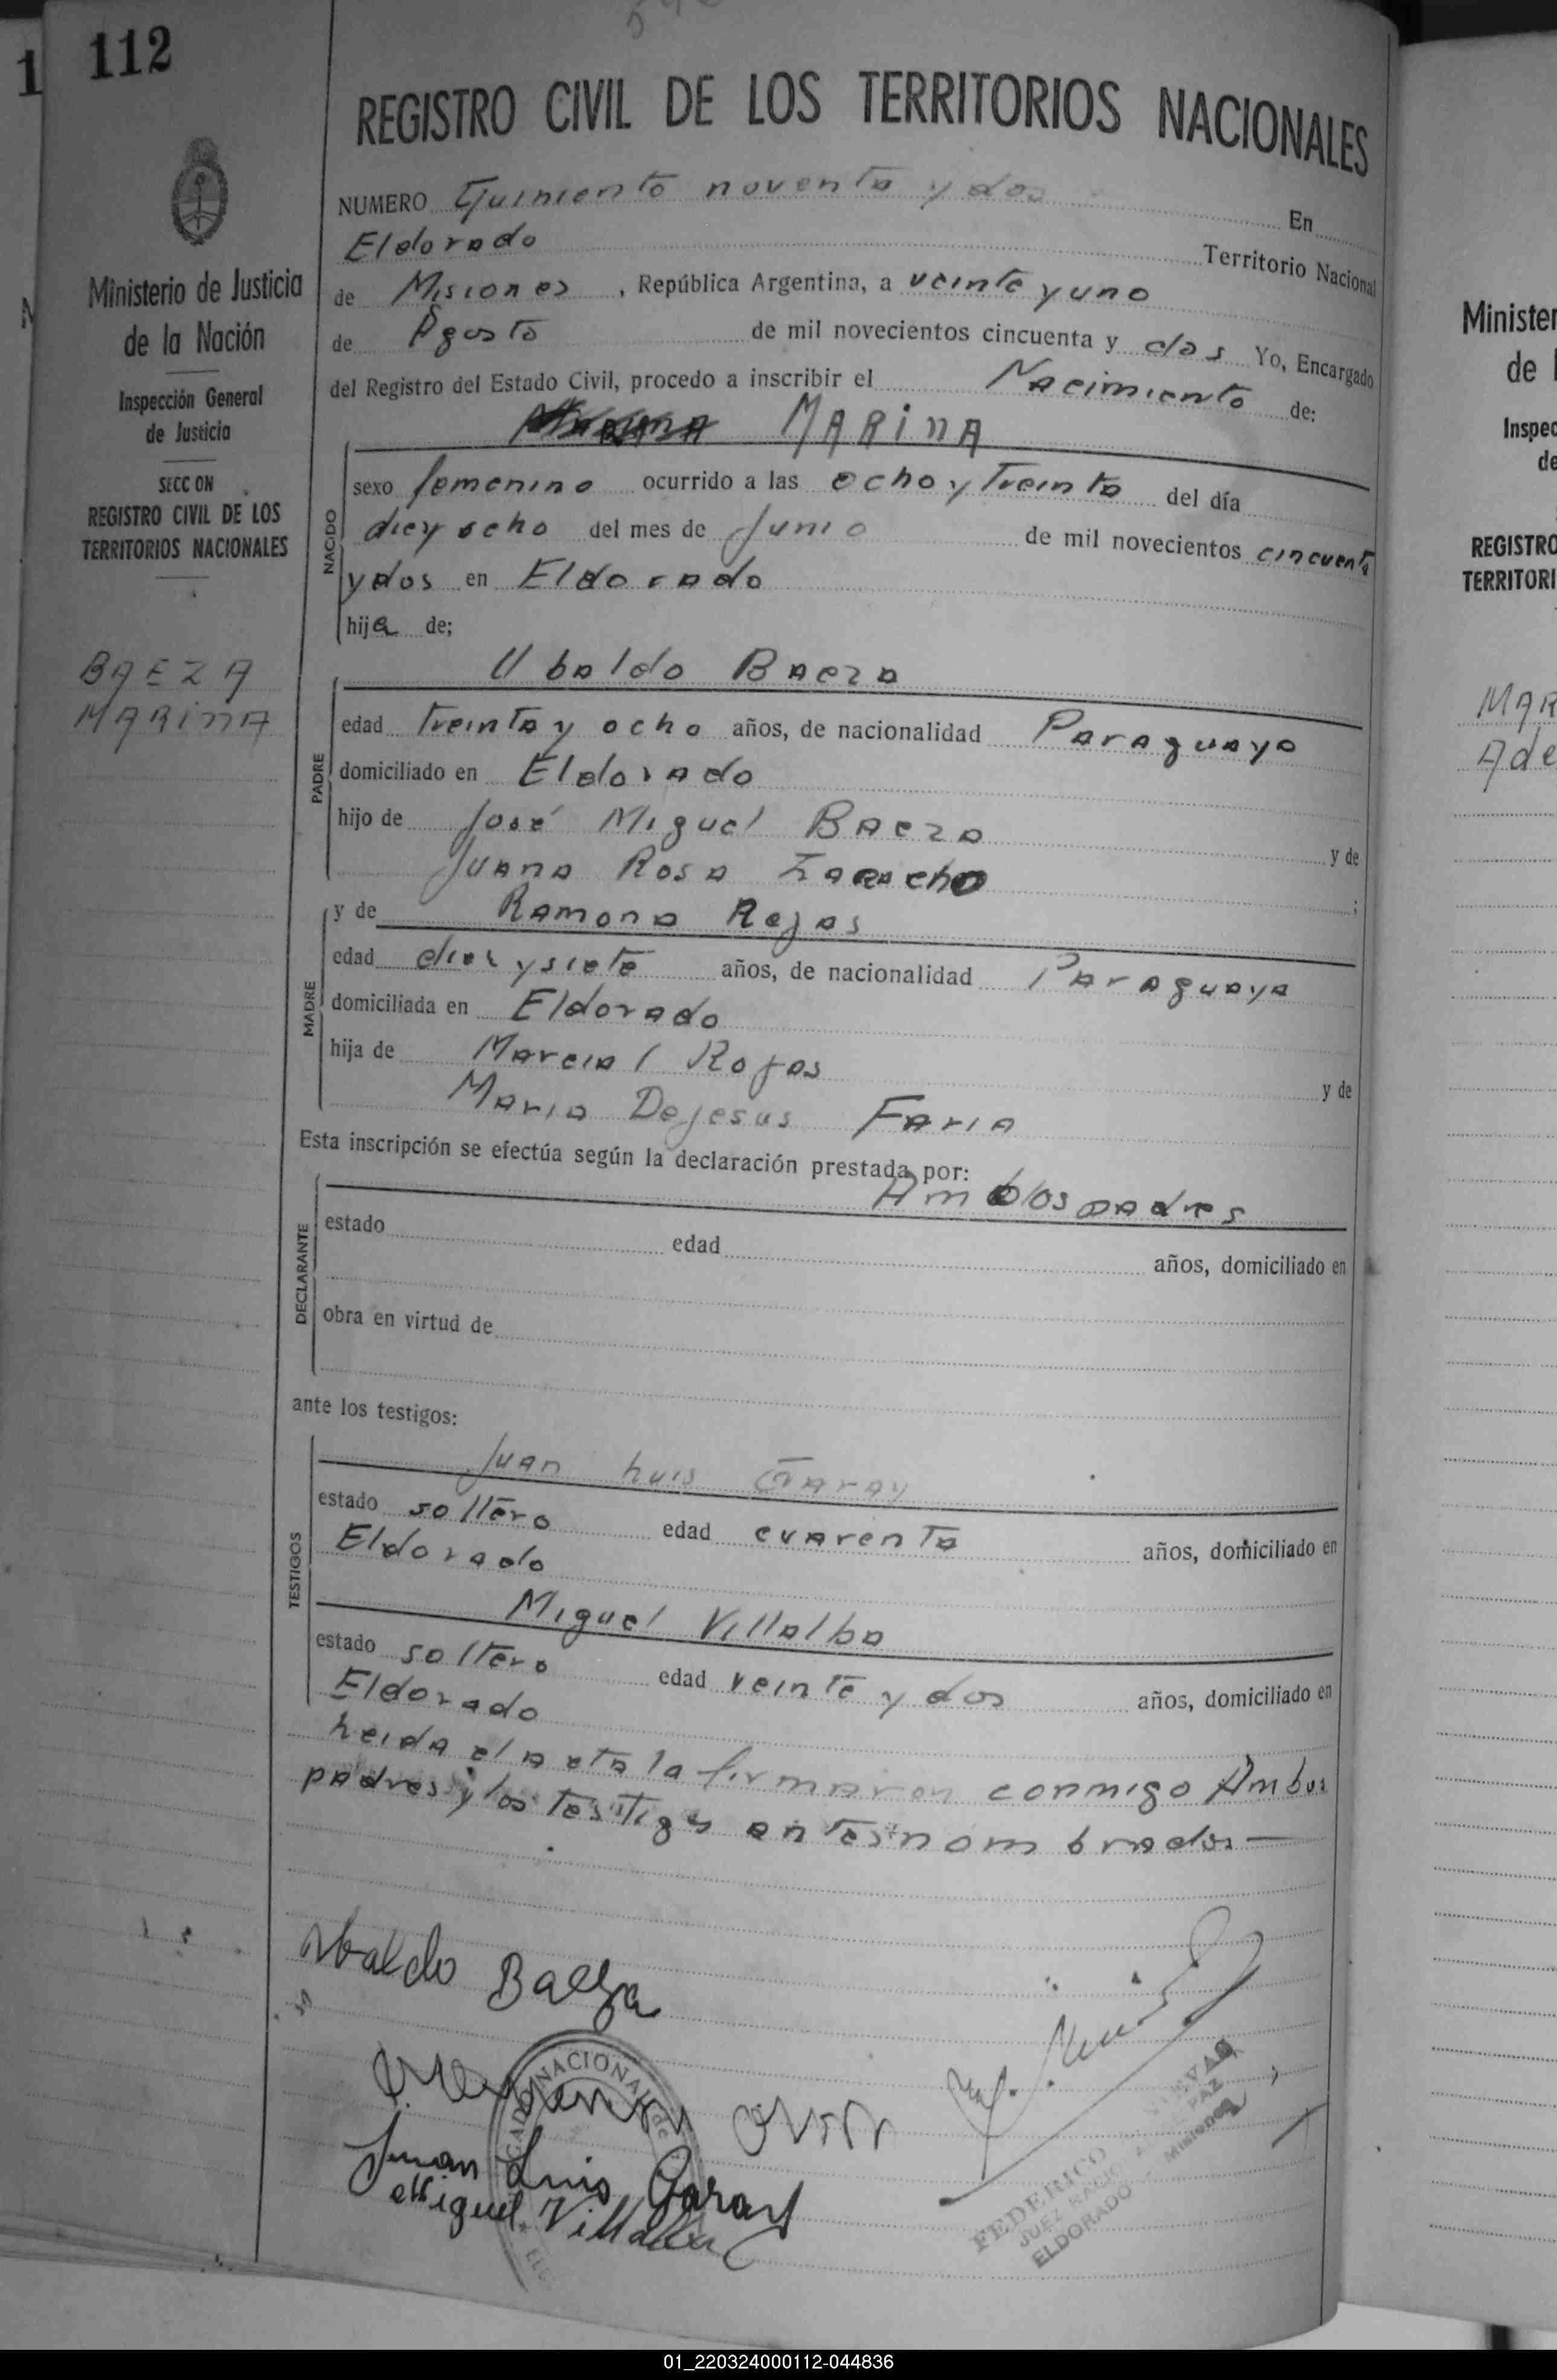 112
REGISTRO CIVIL DE LOS TERRITORIOS NACIONALES
Ministerio de Justicia
de la Nación
Inspección General
de Justicia
SECCON
REGISTRO CIVIL DE LOS
TERRITORIOS NACIONALES
BAEZA
MARINA
NUMERO Quiniento noventa y dos En
Eldorado Territorio Nacional
de Misiones , República Argentina, a veinte y uno
de Agosto de mil novecientos cincuenta y dos Yo, Encargado
del Registro del Estado Civil, procedo a inscribir el Nacimiento de:
MARINA
NACIDO
sexo femenino ocurrido a las ocho y Treinta del día
diez ocho del mes de Junio de mil novecientos cincuenta
y dos en Eldorado
hija de;
Ubaldo Baeza
PADRE
edad Treinta y ocho años, de nacionalidad Paraguaya
domiciliado en Eldorado
hijo de José Miguel Baeza y de
Juana Rosa ;
MADRE
y de Ramona Rojas
edad diez y siete años, de nacionalidad Paraguaya
domiciliada en Eldorado
hija de Marcial Rojas y de
Maria Dejesus Faria
Esta inscripción se efectúa según la declaración prestada por:
Ambos padres
DECLARANTE
estado edad años, domiciliado en
obra en virtud de
ante los testigos:
TESTIGOS
Juan Luis Garay
estado soltero edad cuarenta años, domiciliado en
Eldorado
Miguel Villalba
estado soltero edad veinte y dos años, domiciliado en
Eldorado
Leida el acta la firmaron conmigo Ambos
padres y los testigos antes nombrados—
Ubaldo Baeza
Juan Luis Garay
Miguel Villalba
NACIONAL
FEDERICO
JUEZ
PAZ
ELDORADO - Misiones
Minister
de
Inspec
de
REGISTRO
TERRITORI
MAR
Ade
01_220324000112-044836